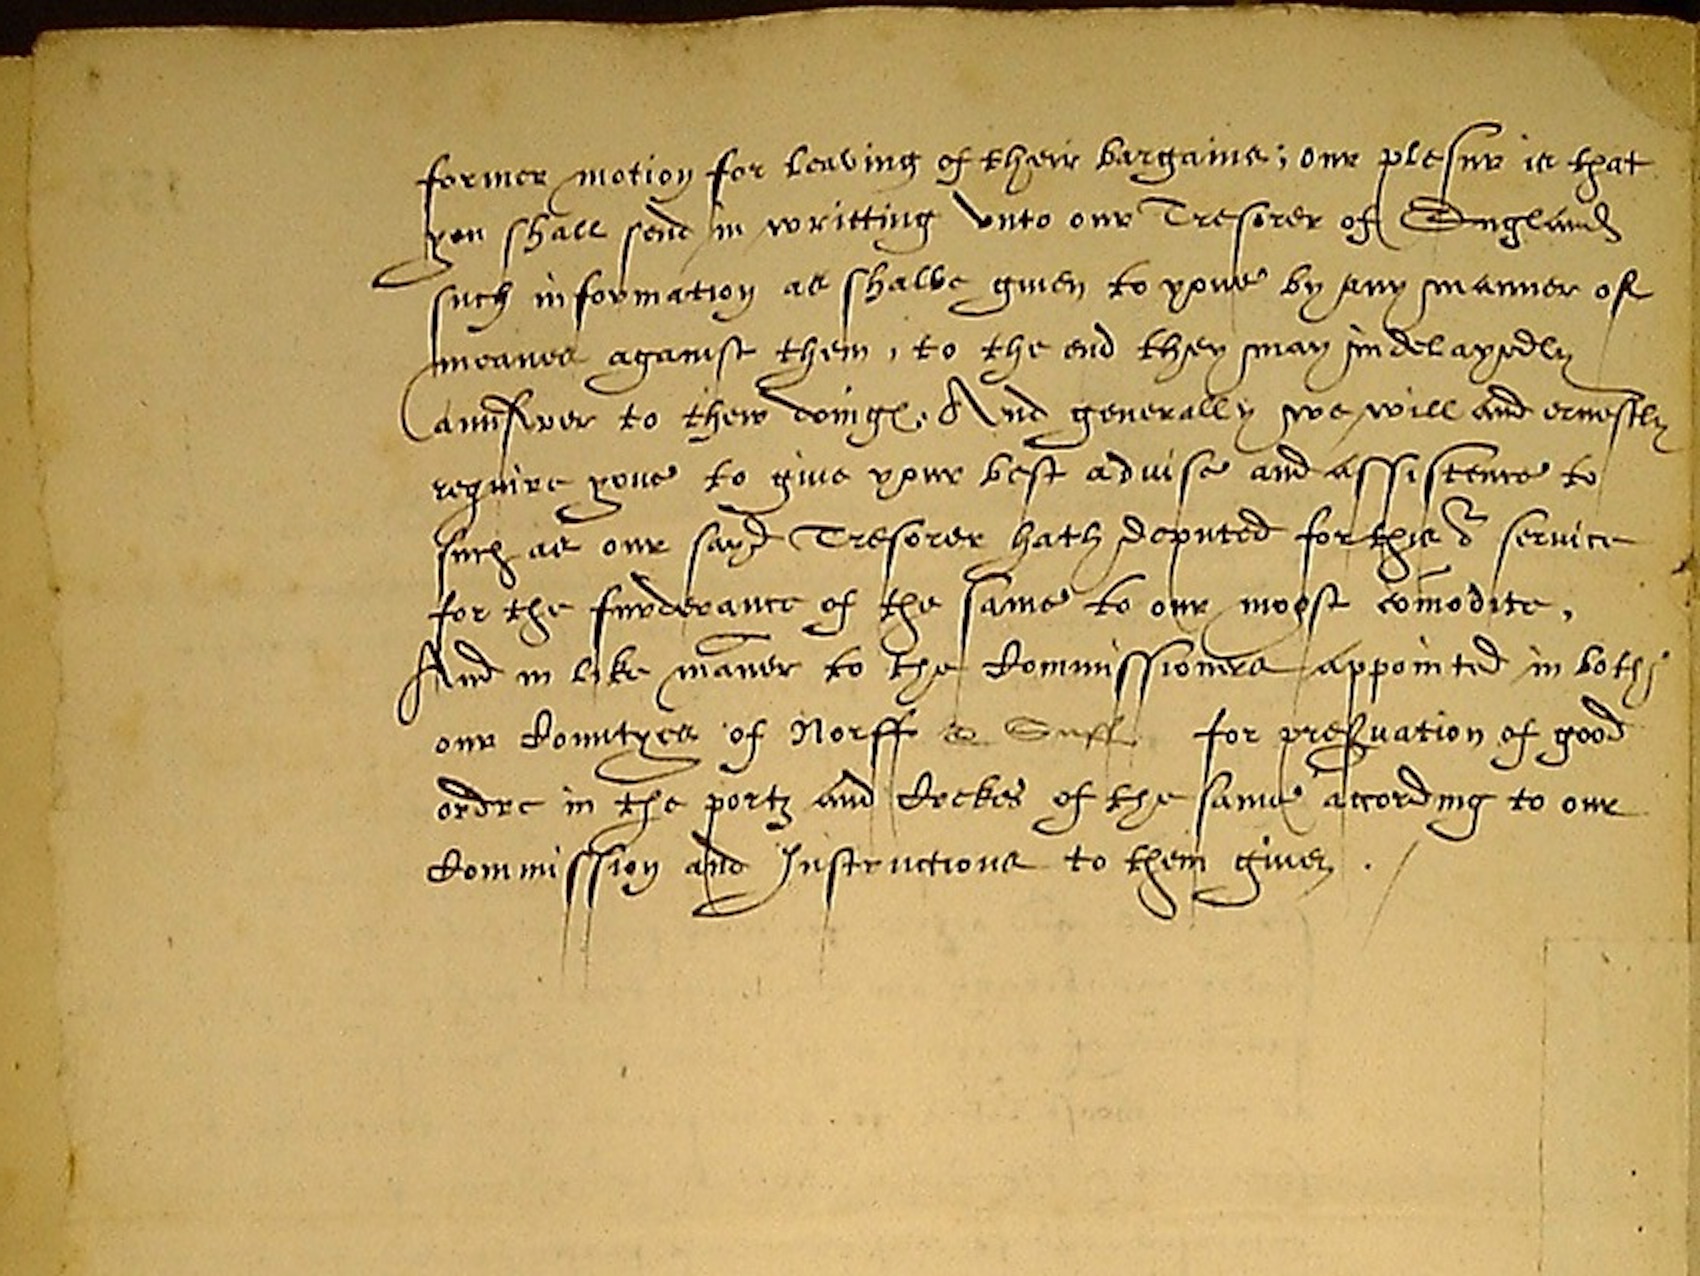 former motion for leaving of their bargains; our plesur is that
you shall send in writting vnto our Tresorer of England
such information as shalbe given to youe by any manner of
meanes against them, to the end they may indelayedly
aunswer to their doings. And generally we will and ernestly
require youe to give your best aduise and assistence to
such as our sayd Tresorer hath deputed for this service
for the furderance of the same to our most comodite,
And in like maner to the Commissioners appointed in both
our Countyes of Norff & Suff for preseruation of good
ordre in the portz and Crekes of the same according to our
Commission and Instructions to them given.